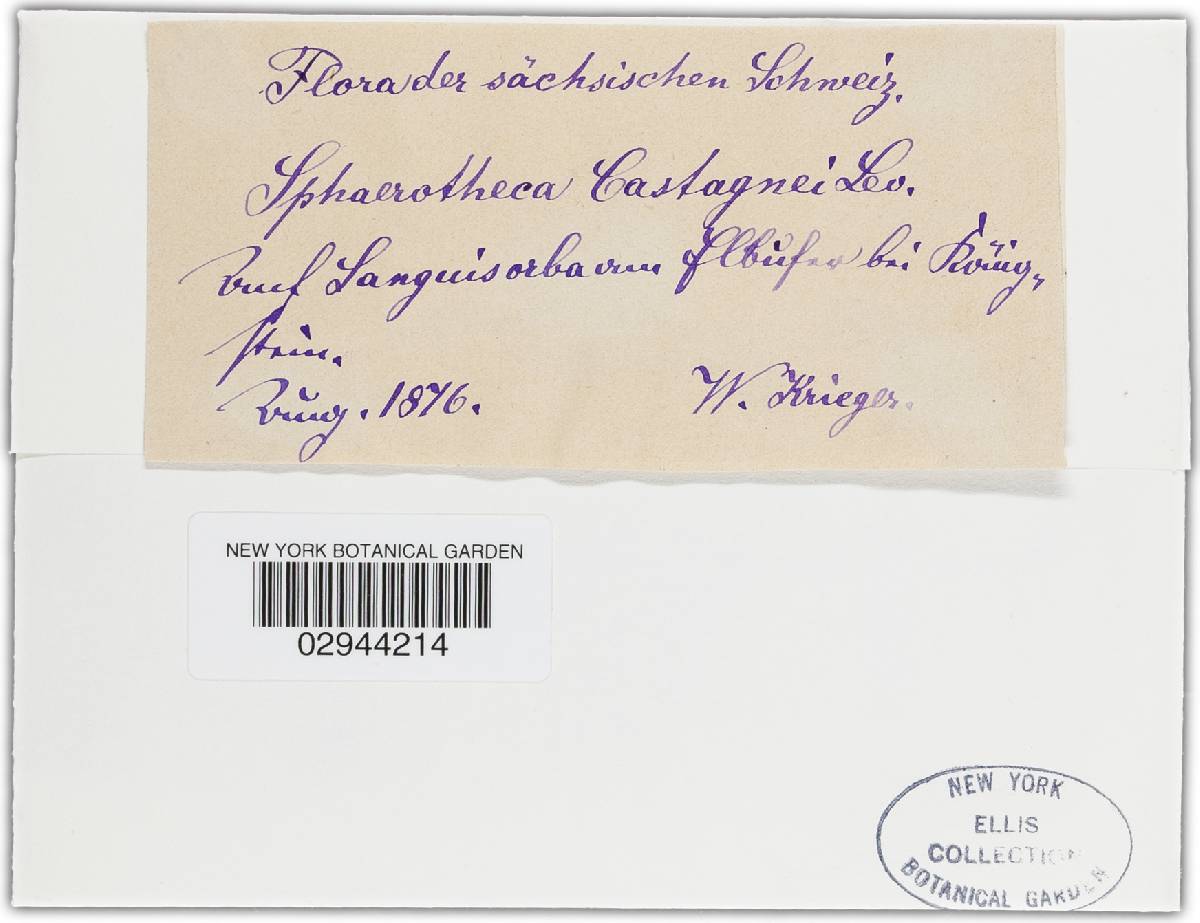 Flora der sächsischen Schweiz.
Sphaerotheca Castagnei Lev.
Auf Sanguisorba am Elbufer bei König-
stein.
Aug. 1876. W. Krieger.
NEW YORK BOTANICAL GARDEN
02944214
NEW YORK
ELLIS
COLLECTION
BOTANICAL GARDEN